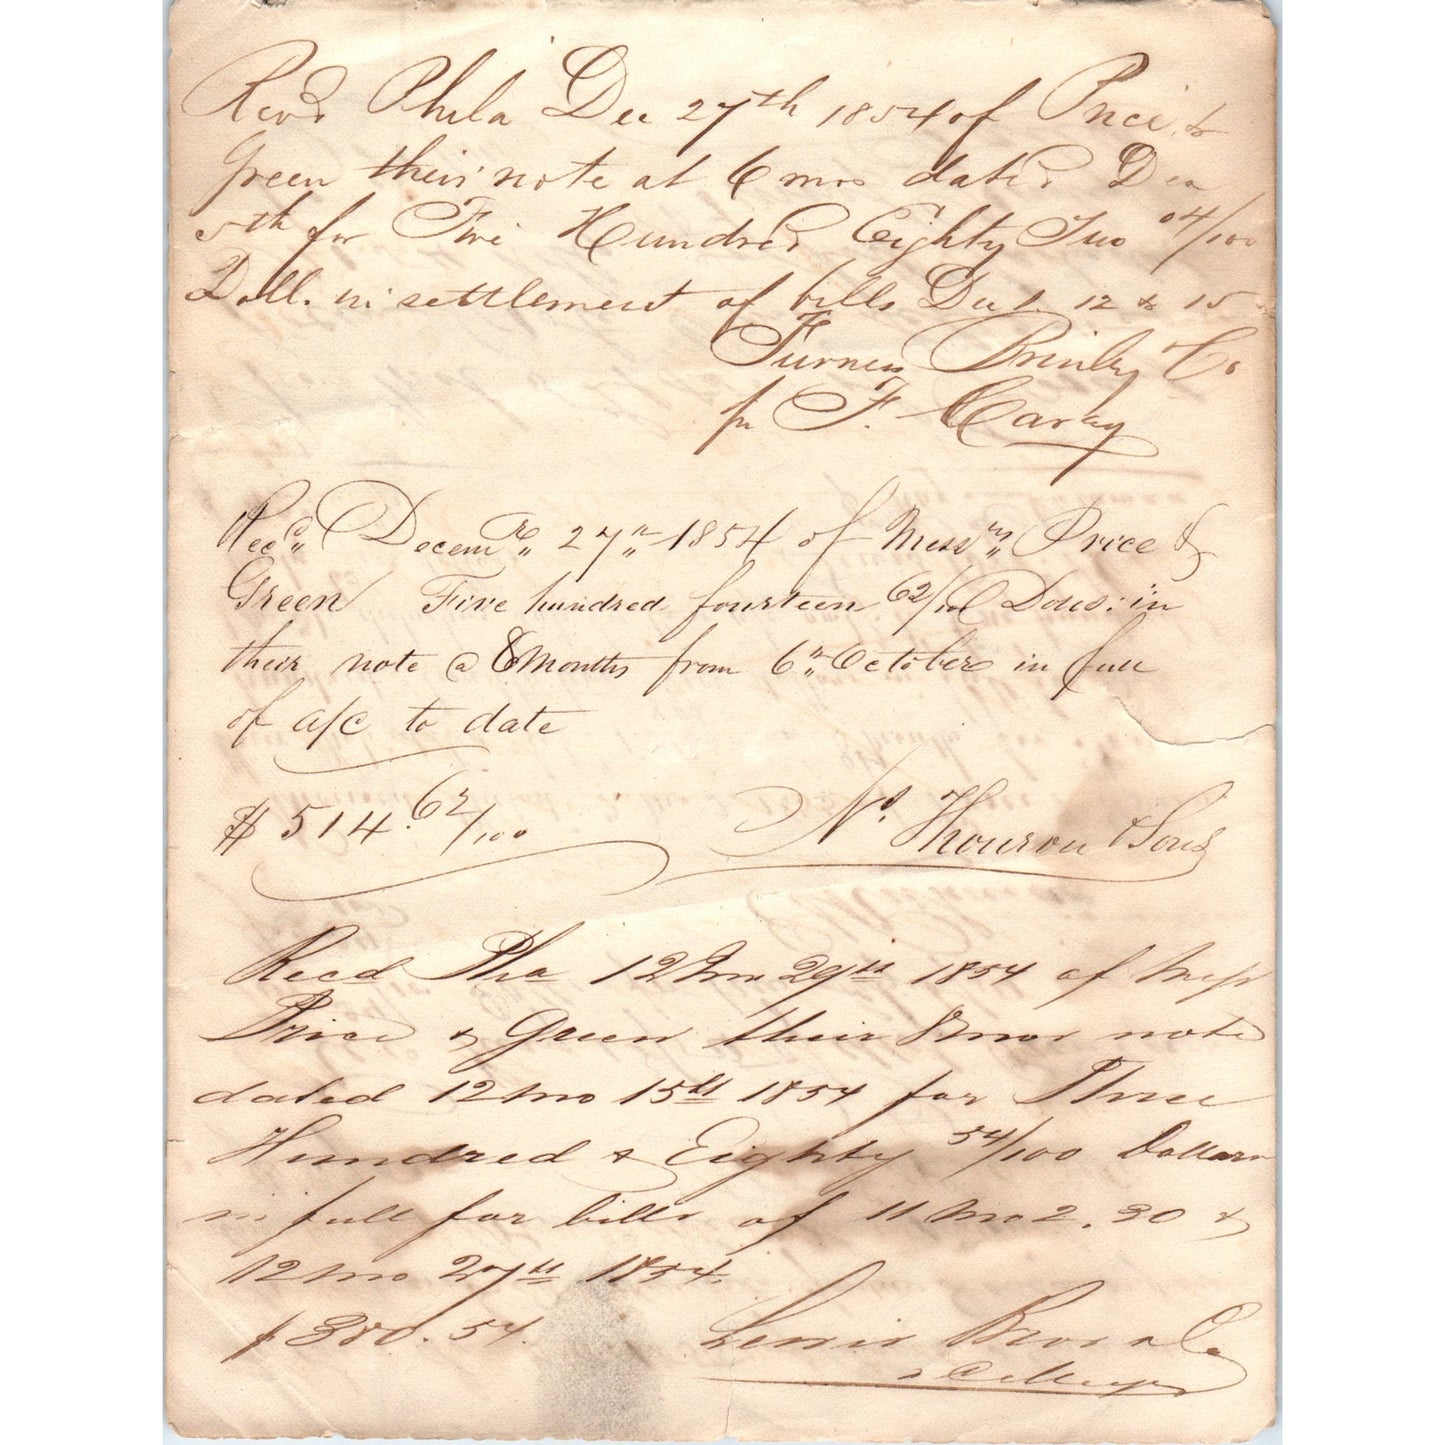 Recd Phila Dec 27th 1854 of Price &
Green their note at 6 mos dated Dec
5th for Five Hundred Eighty Two 04/100
Doll. in settlement of bills Dec 1. 12 & 15
Furness Brinley & Co
pr F. Carey
Recd,, Decemr,, 27th,, 1854 of Messrs,, Price &
Green Five hundred fourteen 62/100 Dolls: in
their note @ 8 Months from 6th,, October in full
of a/c to date
$514.62/100 Ns. Thouron & Sons
Recd Pha 12 Mo 29th 1854 of Mess
Price & Green their 8 mos note
dated 12 mo 15th 1854 for Three
Hundred & Eighty 54/100 Dollars
in full for bills of 11 Mo 2. 30 &
12 mo 27th 1854.
$380.54. Lewis Bros & Co